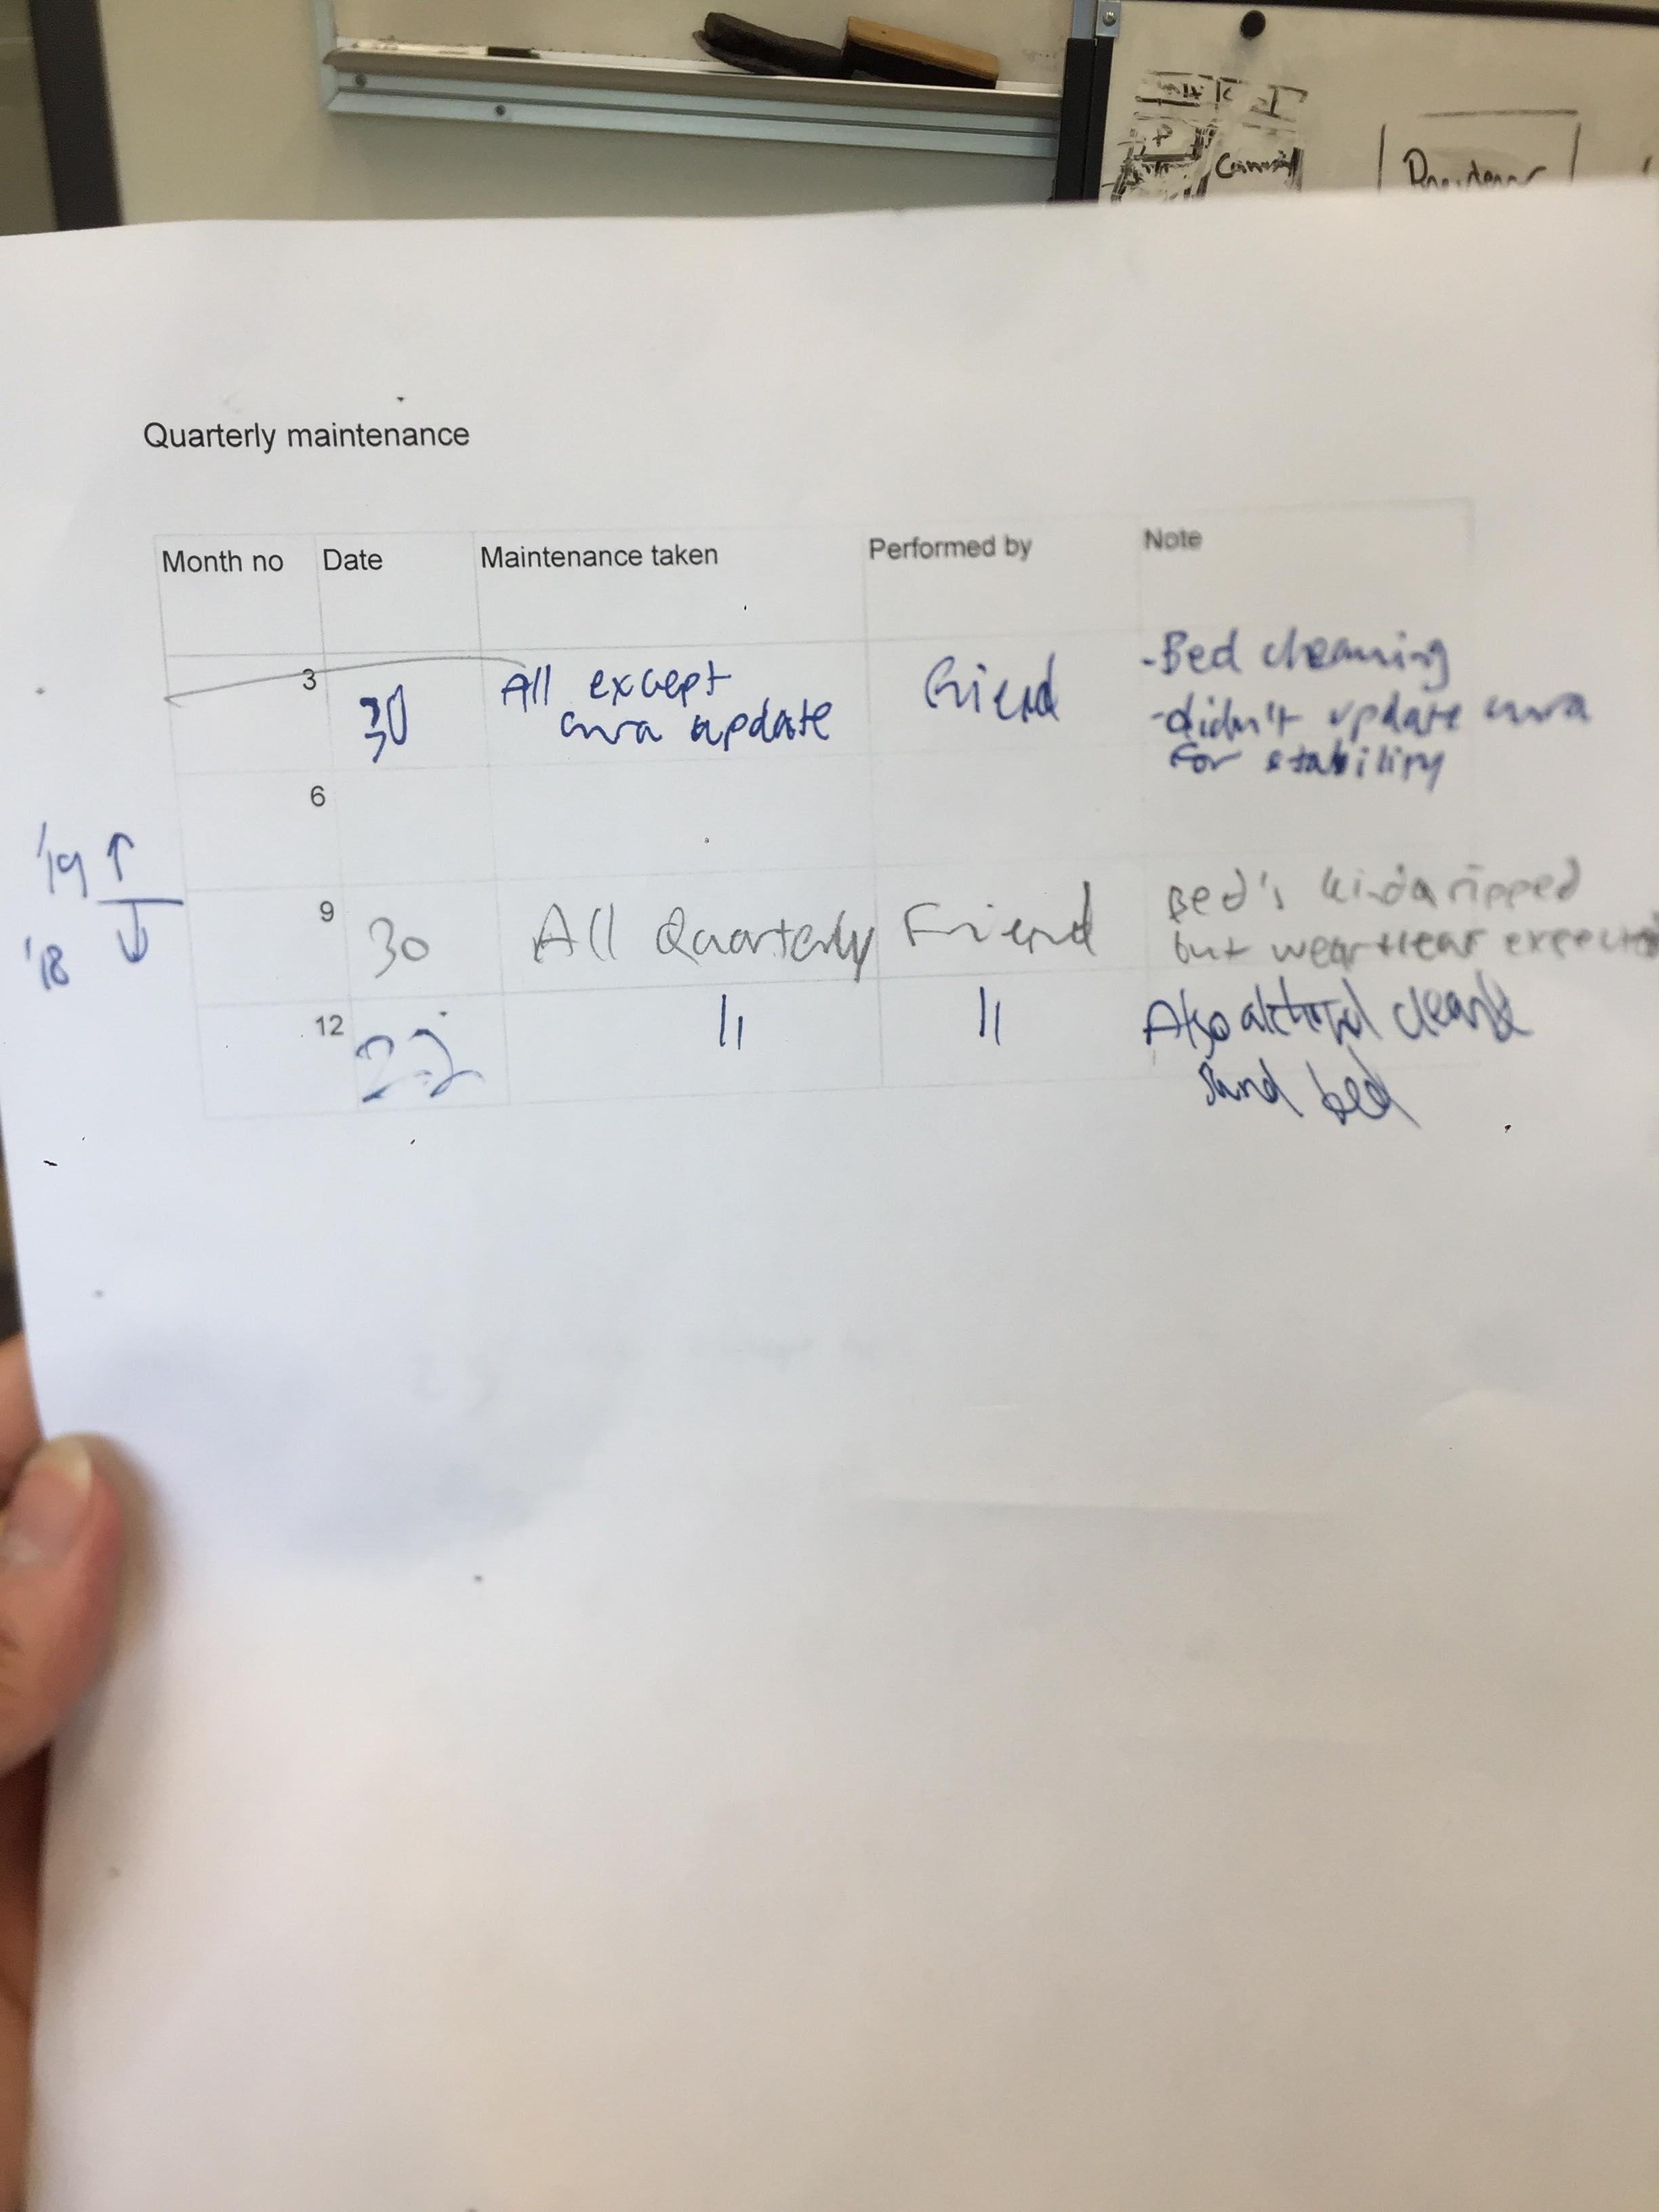 Quarterly maintenance
Month no Date Maintenance taken Performed by Note
3 30 All except cura update Friend -Bed cleaning
-didn't update cura
for stability
6
'19 ↑
'18 ↓
9 30 All Quarterly Friend Bed's kinda ripped
but wear+tear expected
12 22 11 11 Also alcohol clean &
sand bed